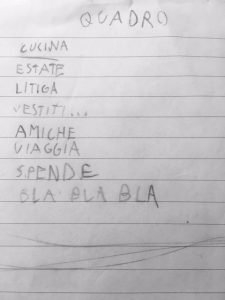 QUADRO
CUCINA
ESTATE
LITIGA
VESTITI...
AMICHE
VIAGGIA
SPENDE
BLA BLA BLA